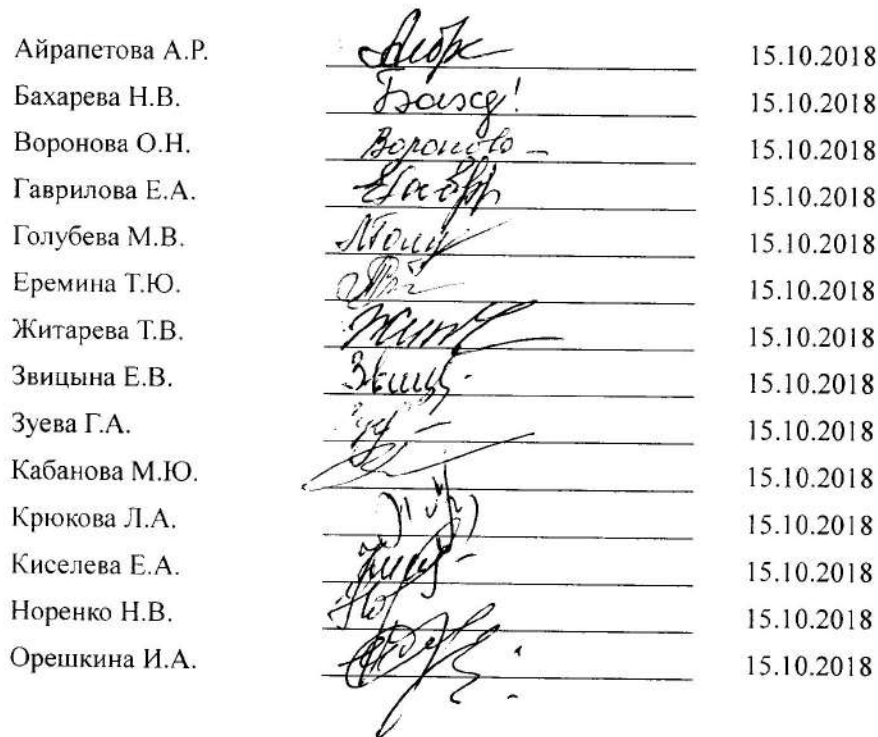 Айрапетова А.Р. 15.10.2018
Бахарева Н.В. 15.10.2018
Воронова О.Н. 15.10.2018
Гаврилова Е.А. 15.10.2018
Голубева М.В. 15.10.2018
Еремина Т.Ю. 15.10.2018
Житарева Т.В. 15.10.2018
Звицына Е.В. 15.10.2018
Зуева Г.А. 15.10.2018
Кабанова М.Ю. 15.10.2018
Крюкова Л.А. 15.10.2018
Киселева Е.А. 15.10.2018
Норенко Н.В. 15.10.2018
Орешкина И.А. 15.10.2018